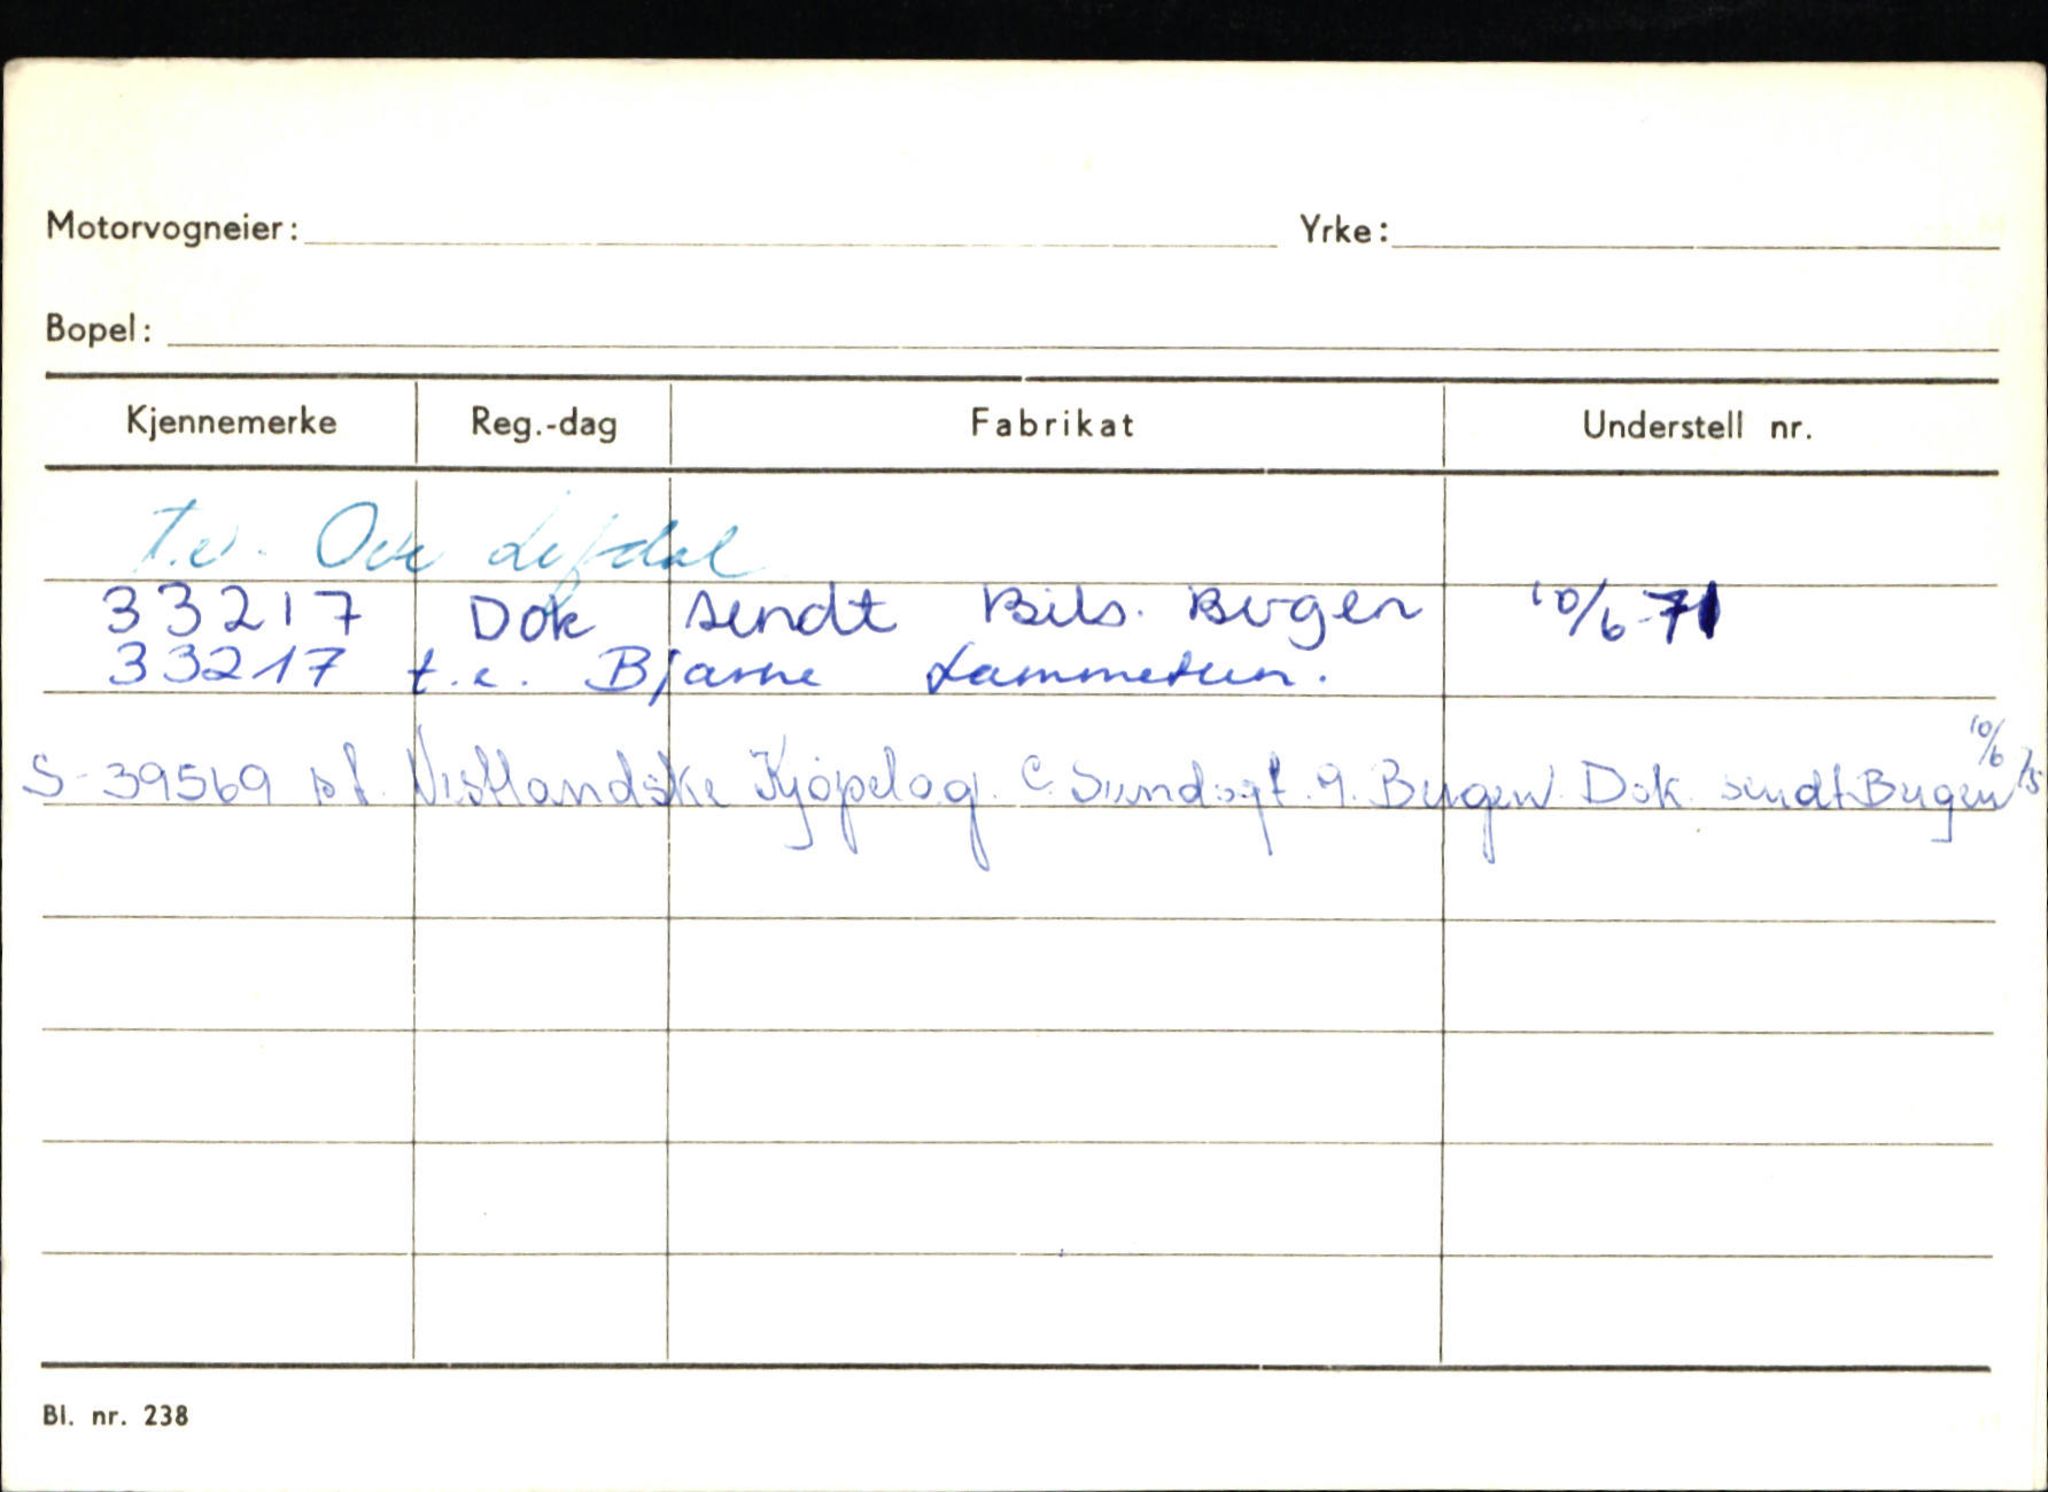 Motorvogneier: Yrke:
Bopel:
Kjennemerke Reg.-dag Fabrikat Understell nr.
T.e. Ove Lefdal
33217 Dok sendt Bils. Bergen 10/6-71
33217 t.e. Bjarne Lammetun.
10/6 75
S-39569 s.f. Vestlandske Kjøpelag. C. Sundsgt. 9. Bergen. Dok. sendt Bergen
Bl. nr. 238